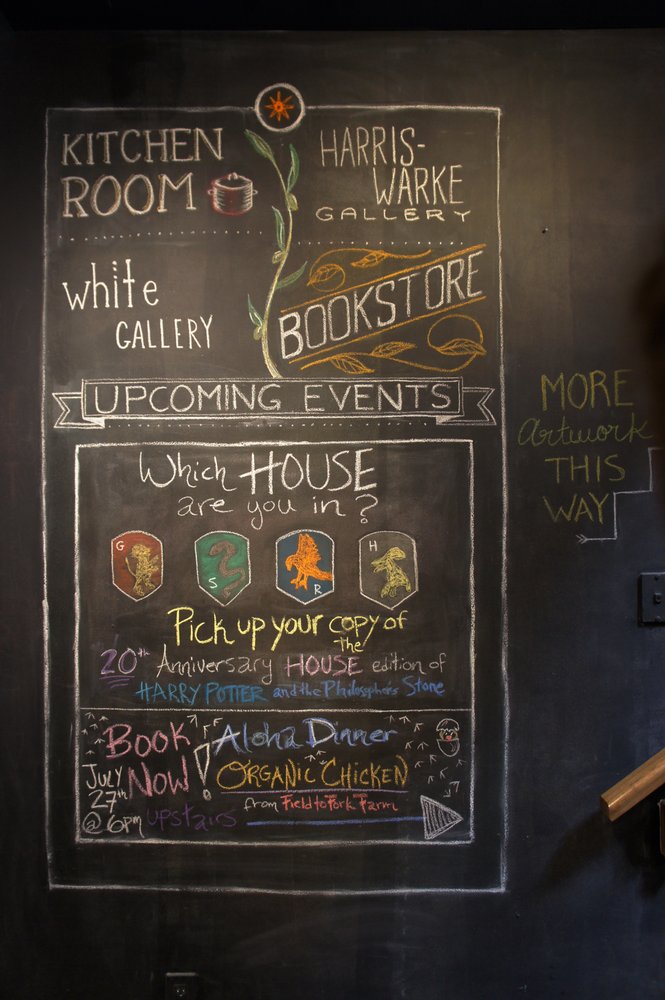 KITCHEN
ROOM
HARRIS-
WARKE
GALLERY
white
GALLERY
BOOKSTORE
UPCOMING EVENTS
Which HOUSE
are you in?
G
S
R
H
Pick up your copy of
the
20th Anniversary HOUSE edition of
HARRY POTTER and the Philosopher's Stone
BOOK
NOW!
JULY
27th
@ 6pm upstairs
Aloha Dinner
ORGANIC CHICKEN
from Field to Fork Farm
MORE
Artwork
THIS
WAY